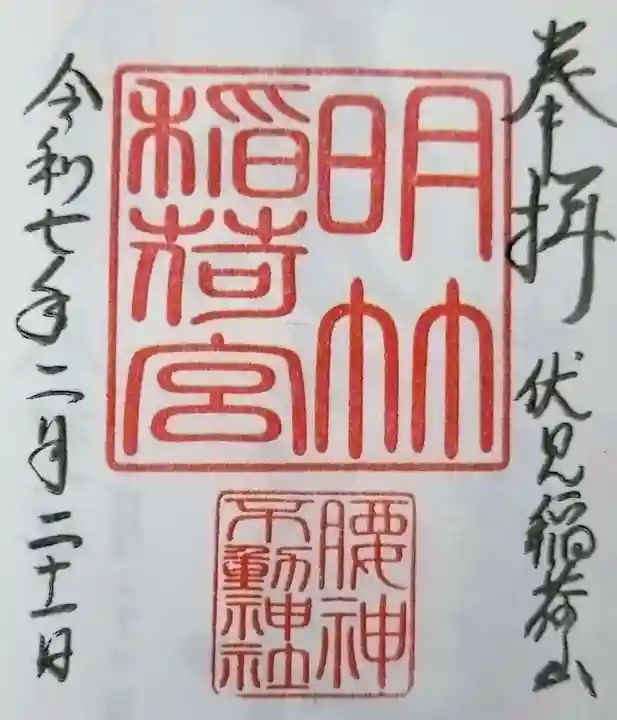 奉拝 伏見稲荷山
明竹
稲荷宮
腰神
不動神社
令和七年二月二十一日